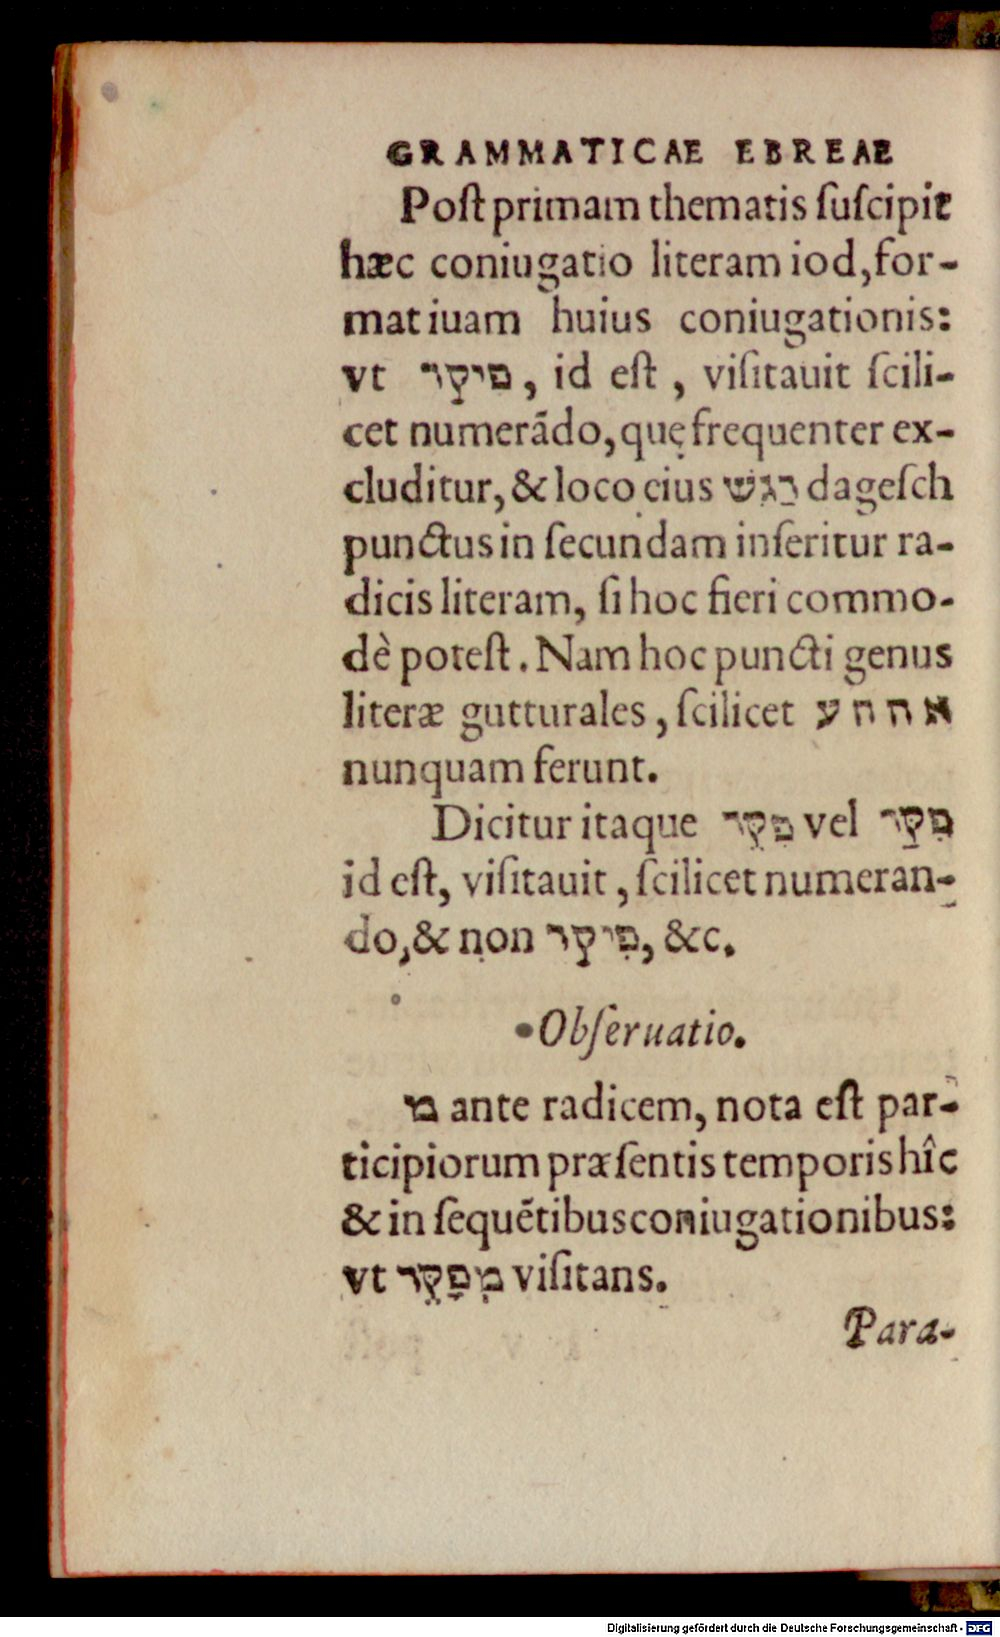 GRAMMATICAE EBREAE
Poſt primam thematis ſuſcipit
hæc coniugatio literam iod, for-
matiuam huius coniugationis:
vt פיקֵד, id eſt, viſitauit ſcili-
cet numerãdo, quę frequenter ex-
cluditur, & loco eius דָגֵשׁ dageſch
punctus in ſecundam inſeritur ra-
dicis literam, ſi hoc fieri commo-
dè poteſt. Nam hoc puncti genus
literæ gutturales, ſcilicet א ה ח ע
nunquam ferunt.
Dicitur itaque פִּקֵּד vel פִּקַּד
id eſt, viſitauit, ſcilicet numeran-
do, & non פִּיקֵד, &c.
Obſeruatio.
מ ante radicem, nota eſt par-
ticipiorum præſentis temporis hîc
& in ſequẽtibus coniugationibus:
vt מְפָקֵּד viſitans.
Para-
Digitalisierung gefördert durch die Deutsche Forschungsgemeinschaft - DFG